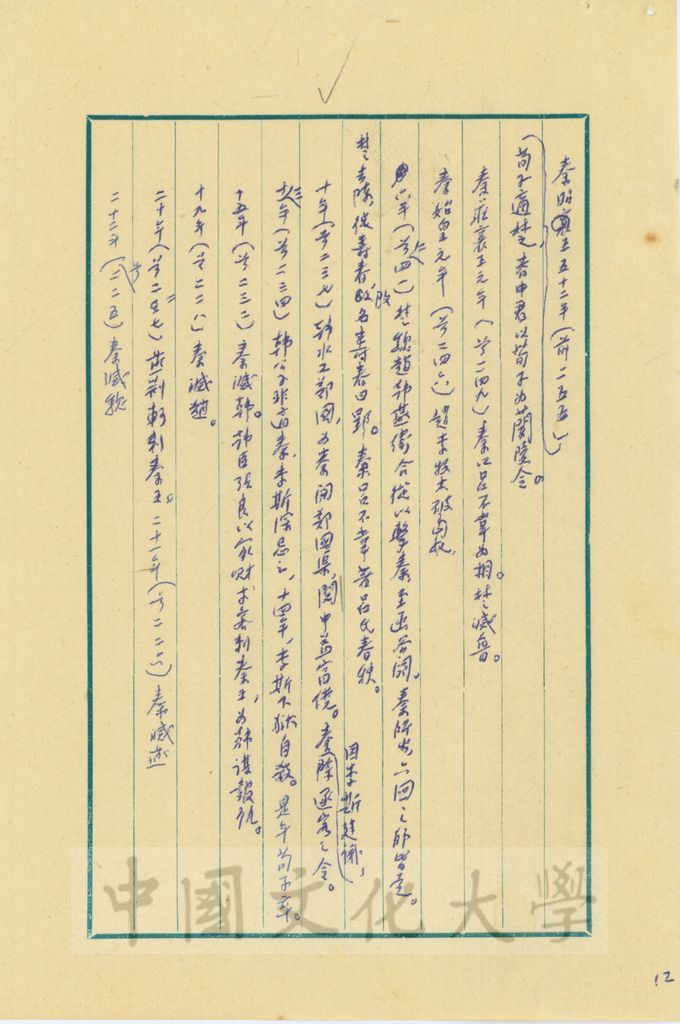 秦昭襄王五十二年（前二五五）
荀子適楚，春申君以荀子為蘭陵令。
秦莊襄王元年（前二四九）秦以呂不韋為相。楚滅魯。
秦始皇元年（前二四六）趙李牧大破匈奴
六年（前二四一）楚魏趙韓燕衛合從以擊秦至函谷關，秦師出，六國之師皆走。
楚去陳徙壽春，改名壽春曰郢。秦呂不韋著呂氏春秋。
十年（前二三七）韓水工鄭國，為秦開鄭國渠，關中益富饒。因李斯建議，秦除逐客之令。
十三年（前二三四）韓公子非適秦，李斯深忌之，十四年，李斯下獄自殺。是年荀子卒。
十五年（前二三二）秦滅韓。韓臣張良以家財求客刺秦王，為韓謀報仇。
十九年（前二二八）秦滅趙。
二十年（前二二七）燕荊軻刺秦王。二十一年（前二二六）秦滅燕
二十二年（前二二五）秦滅魏
中國文化大學
12